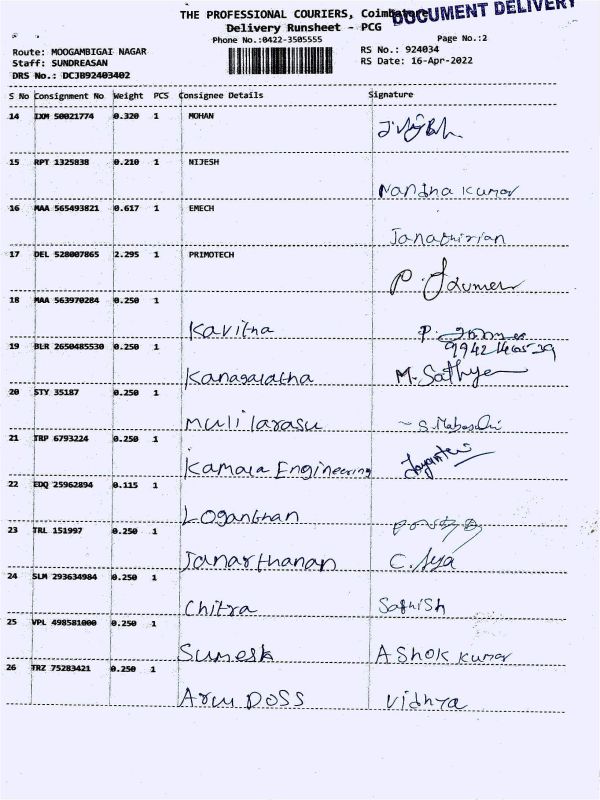 THE PROFESSIONAL COURIERS,
DOCUMENT DELIVERY
Delivery Runsheet - PCG
Phone No.:0422-3505555
Page No.:2
Route: MOOGAMBIGAI NAGAR
RS No.: 924034
Staff: SUNDREASAN
RS Date: 16-Apr-2022
DRS No.: DCJB92403402
S No Consignment No Weight PCS Consignee Details Signature
14 IXM 50021774 0.320 1 MOHAN
15 RPT 1325838 0.210 1 NIJESH
Nandha Kumar
16 MAA 565493821 0.617 1 EMECH
Janathirian
17 DEL 528007865 2.295 1 PRIMOTECH
18 MAA 563970284 0.250 1
Kavitha
19 BLR 2650485530 0.250 1
Kanagalatha M. Sathya
20 STY 35187 0.250 1
Mullarasu
21 TRP 6793224 0.250 1
Kamala Engineering
22 EDQ 25962894 0.115 1
Loganthan
23 TRL 151997 0.250 1
Janarthanan
24 SLM 293634984 0.250 1
Chitra Sathish
25 VPL 498581000 0.250 1
Sumesh Ashok Kumar
26 TRZ 75283421 0.250 1
Arul Doss Vidhya